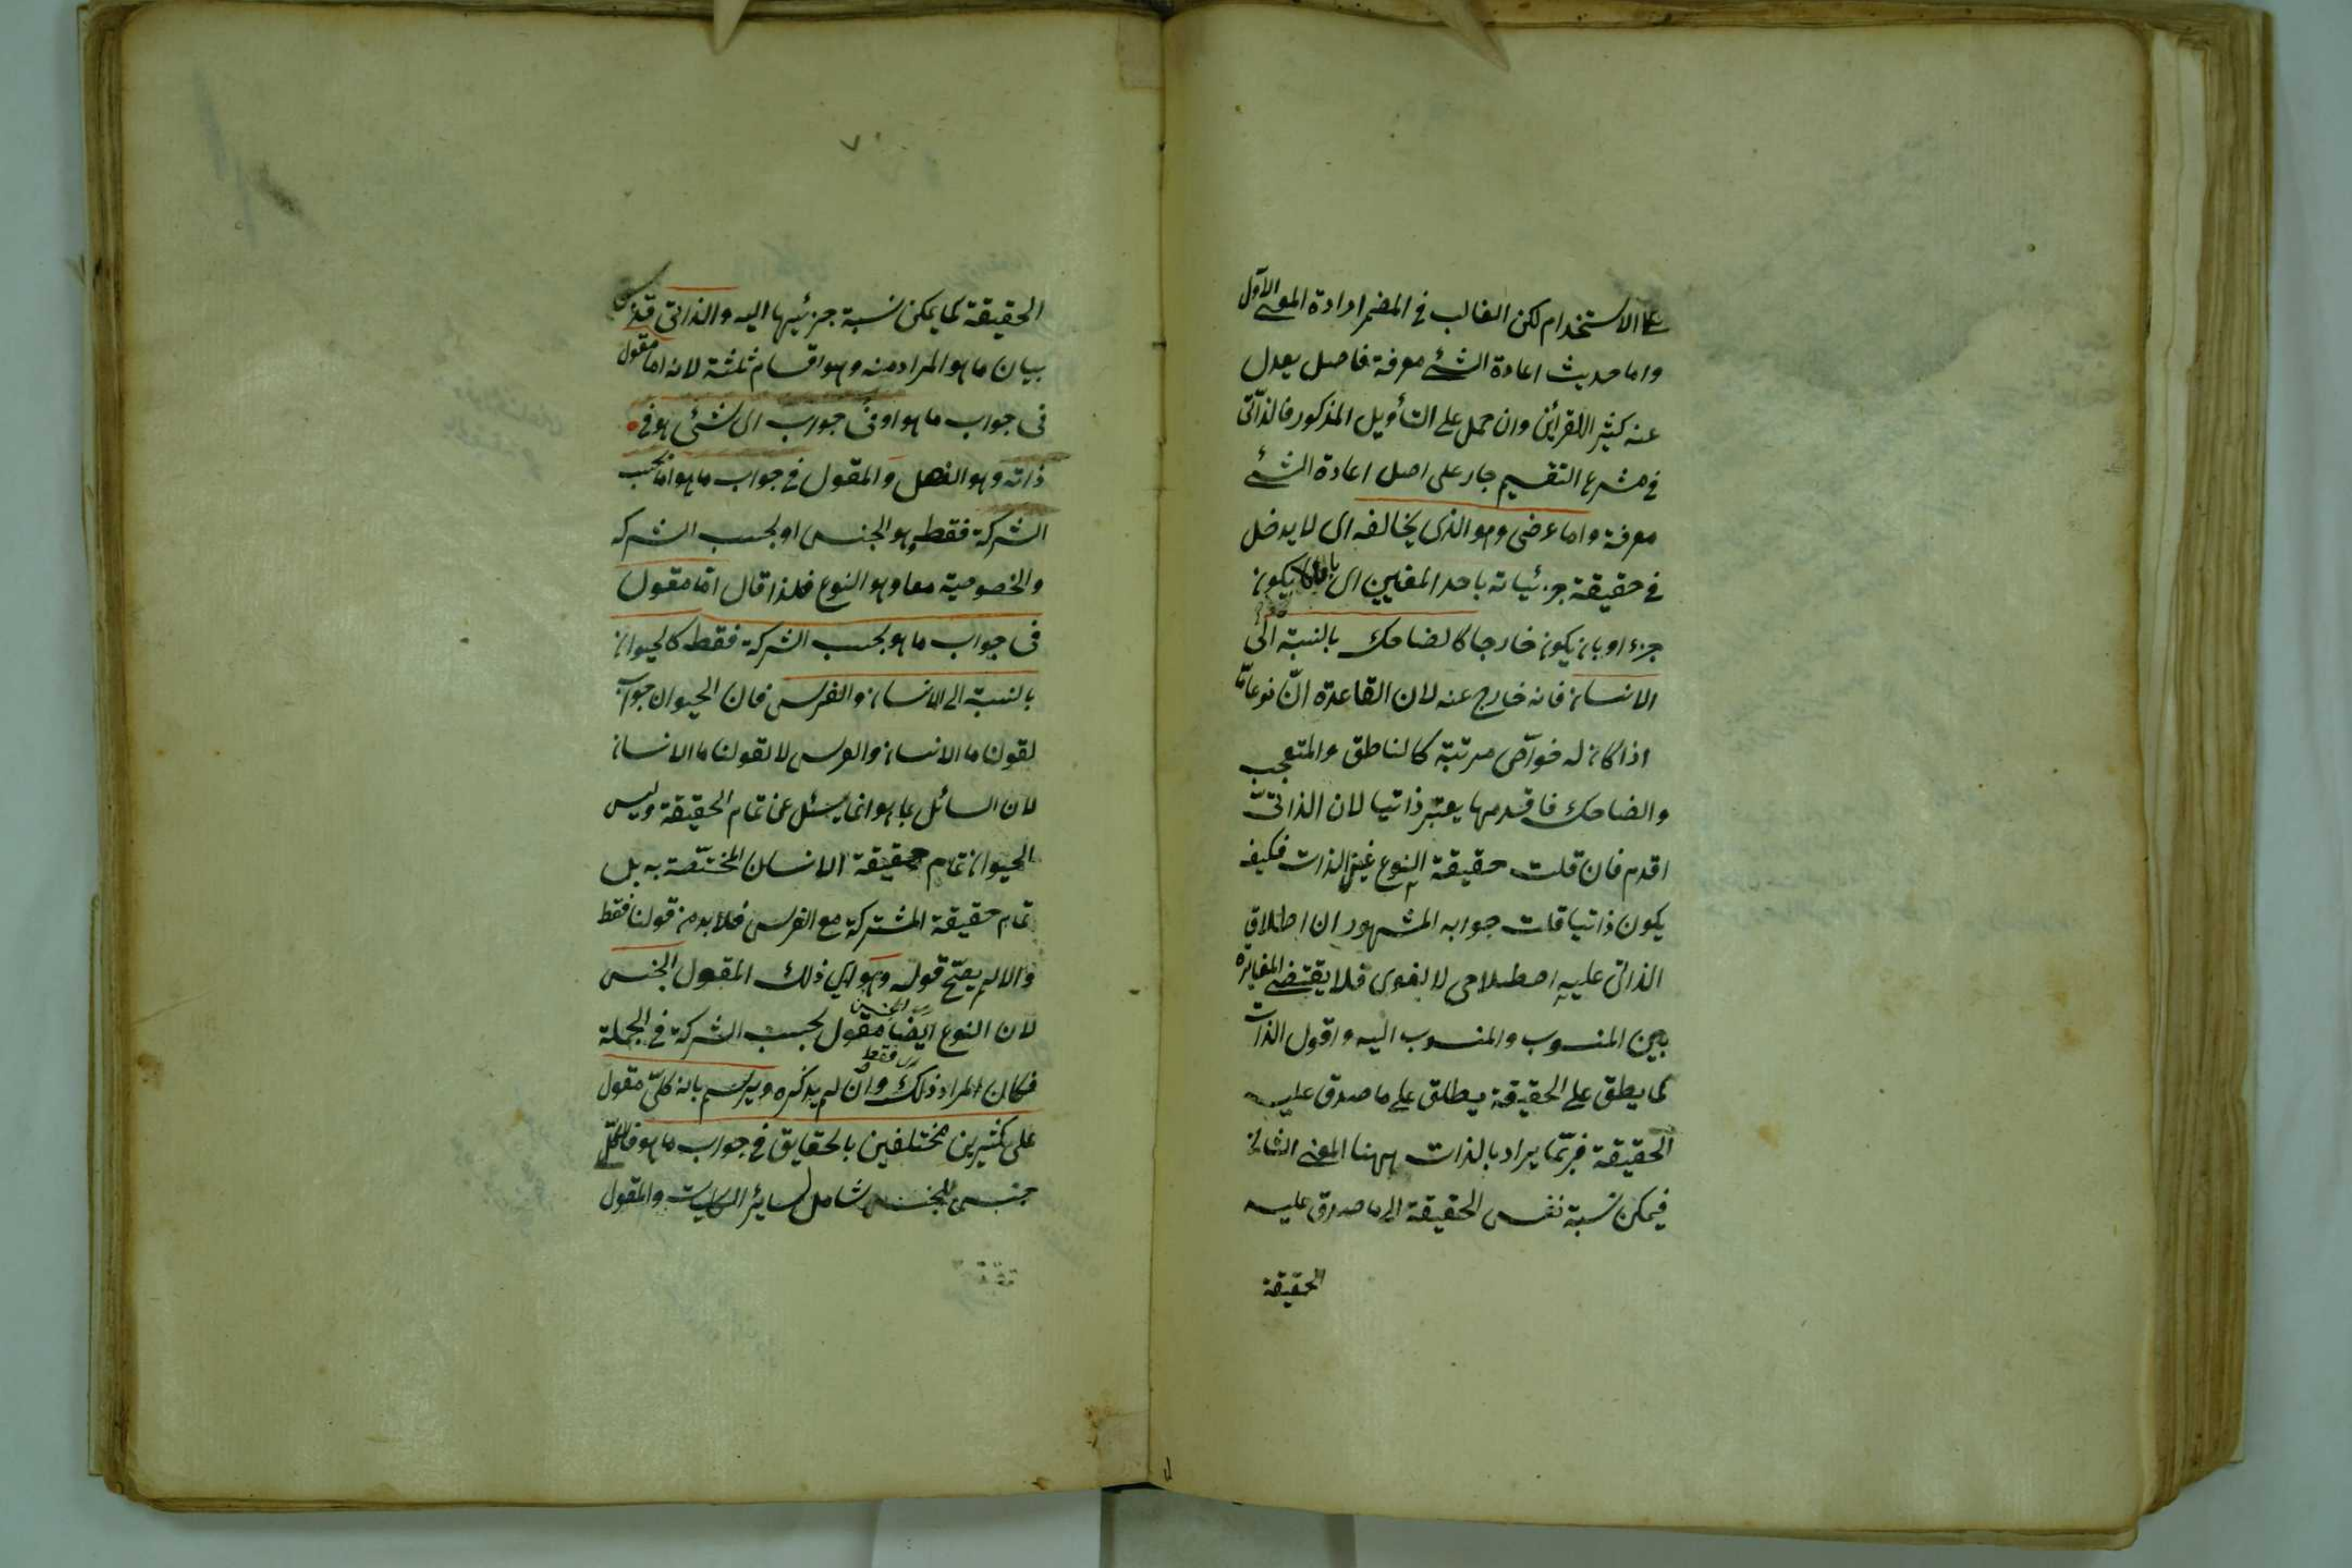 على الاستخدام لكن الغالب في المضمر ارادة المعنى الاول
واما حديث اعادة الشئ معرفة فاصل يعدل
عنه كثيرا للقرائن وان حمل على التأويل المذكور فالذاتى
في مشرع التقسيم جار على اصل اعادة الشئ
معرفة واما عرضى وهو الذى يخالفه اى لا يدخل
في حقيقة جزئياته باحد المعنيين اى بان لا يكون
جزء او بان يكون خارجا كالضاحك بالنسبة الى
الانسان فانه خارج عنه لان القاعدة انّ نوعا مّا
اذا كان له خواصّ مرتبة كالناطق والمتعجب
والضاحك فاقدمها يعتبر ذاتيا لان الذاتىّ
اقدم فان قلت حقيقة النوع عين الذات فكيف
يكون ذاتيا قلت جوابه المشهور ان اطلاق
الذاتى عليه اصطلاحى لا لغوى فلا يقتضى المغايرة
بين المنسوب والمنسوب اليه واقول الذات
كما يطلق على الحقيقة يطلق على ما صدق عليه
الحقيقة فربّما يراد بالذات ههنا المعنى الثانى
فيمكن نسبة نفس الحقيقة الى ما صدق عليه
الحقيقة
الحقيقة كما يمكن نسبة جزئيها اليه والذاتى
بيان ما هو المراد منه وهو اقسام ثلثة لانه اما مقول
فى جواب ما هو او فى جواب اى شئ هو في
ذاته وهو الفصل والمقول في جواب ما هو اما بحسب
الشركة فقط وهو الجنس او بحسب الشركه
والخصوصية معا وهو النوع فلذا قال امّا مقول
فى جواب ما هو بحسب الشركة فقط كالحيوان
بالنسبة الى الانسان والفرس فان الحيوان جواب
لقولنا ما الانسان والفرس لا لقولنا ما الانسان
لان السائل بما هو انما يسئل عن تمام الحقيقة وليس
الحيوان تمام حقيقة الانسان المختصّة به بل
تمام حقيقة المشتركة مع الفرس فلا بد من قولنا فقط
والا لم يصحّ قوله وهو اى ذلك المقول الجنس
لان النوع ايضا مقول بحسب الشركة في الجملة
فكان المراد ذلك وان لم يذكره ويرسم بانه كلىّ مقول
على كثيرين مختلفين بالحقايق في جواب ما هو فالكلىّ
جنس للجنس شامل لسائر الكليات والمقول